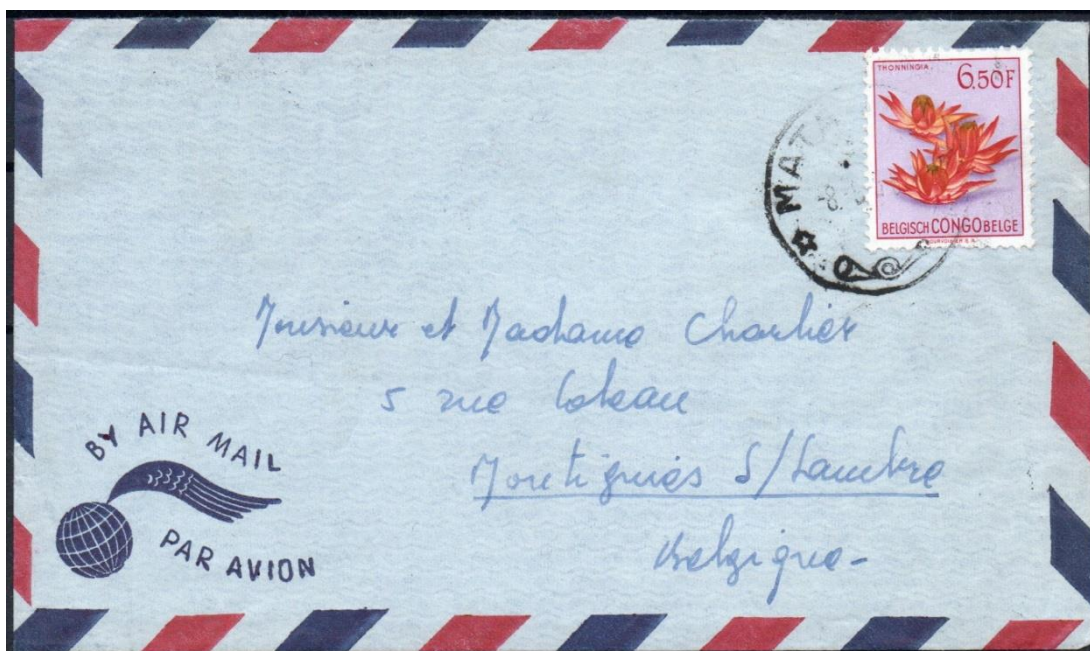 THONNINGIA.
6.50F
BELGISCH CONGO BELGE
MATA
-8.
Monsieur et Madame Charlier
5 rue Coteau
Montignies S/Sambre
Belgique-
BY AIR MAIL
PAR AVION